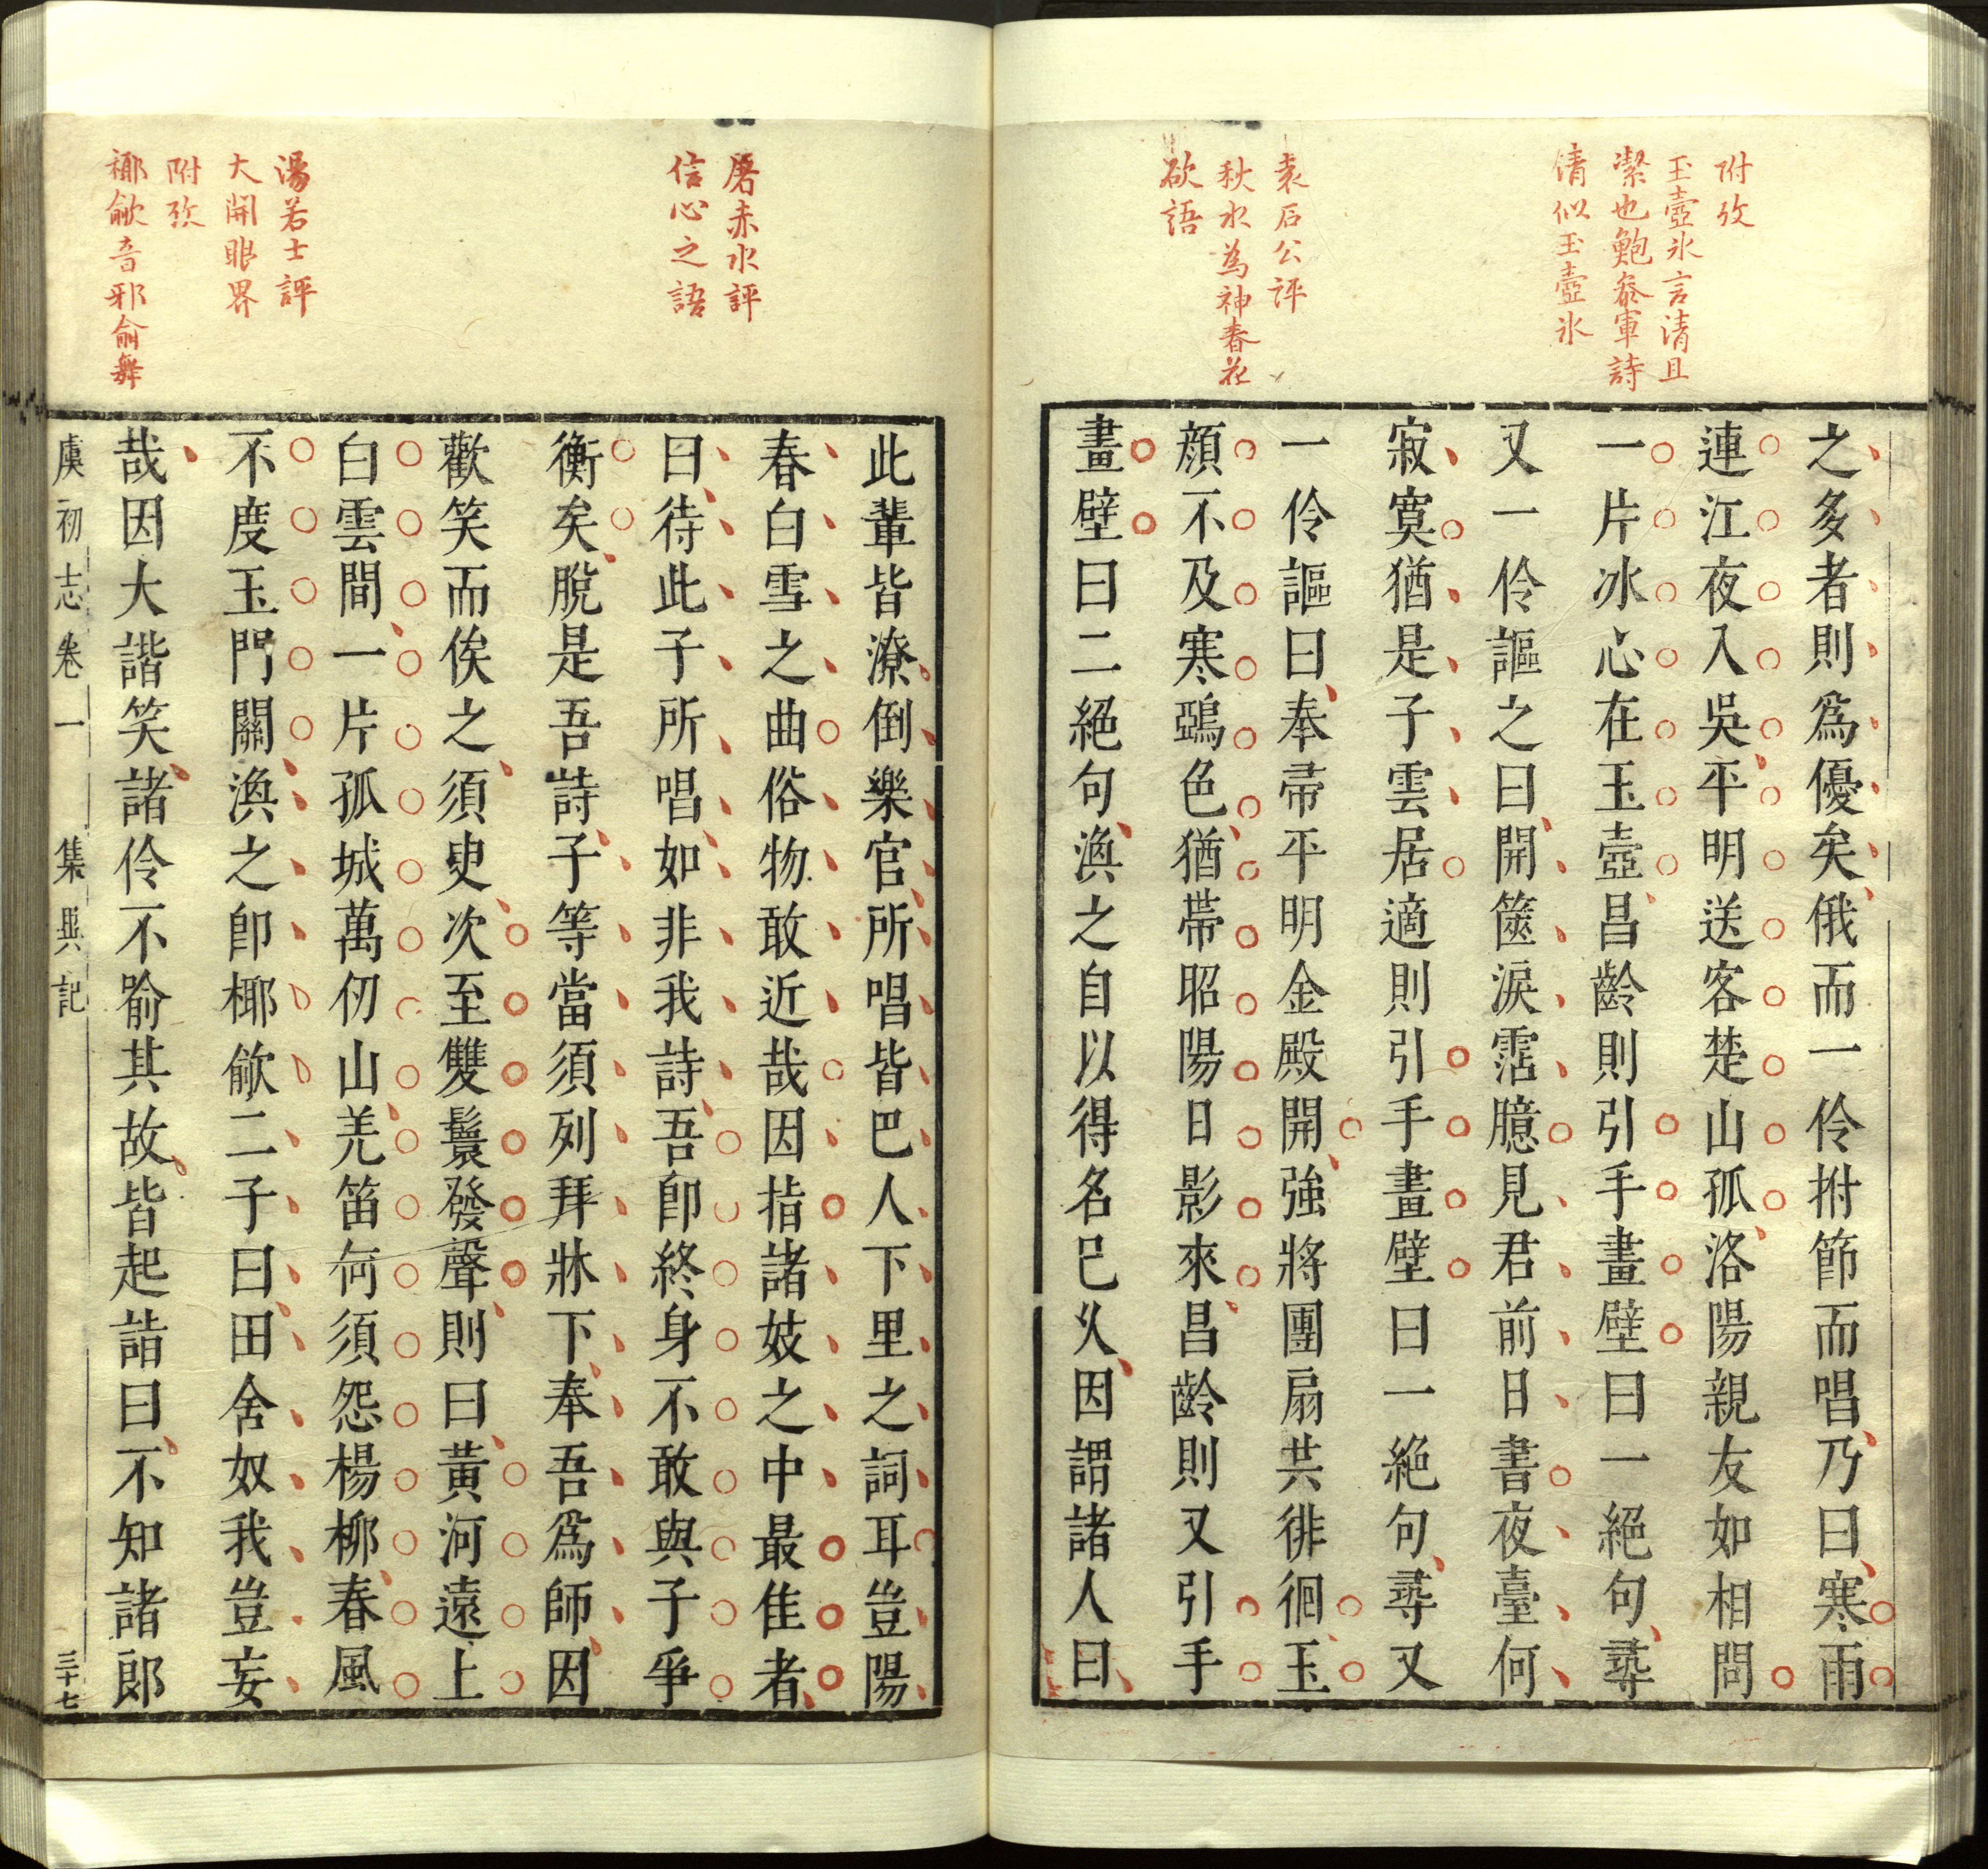 附攷
玉壺氷言清且
潔也鮑叅軍詩
清似玉壺氷
袁石公評
秋水為神春花
欲語
之多者則爲優矣俄而一伶拊節而唱乃曰寒雨
連江夜入吳平明送客楚山孤洛陽親友如相問
一片冰心在玉壺昌齡則引手畫壁曰一絕句尋
又一伶謳之曰開篋淚霑臆見君前日書夜臺何
寂寞猶是子雲居適則引手畫壁曰一絕句尋又
一伶謳曰奉帚平明金殿開強將團扇共徘徊玉
顏不及寒鵶色猶帶昭陽日影來昌齡則又引手
畫壁曰二絕句渙之自以得名已乆因謂諸人曰
屠赤水評
信心之語
湯若士評
大開眼界
附攷
揶歈音邪俞舞
此輩皆潦倒樂官所唱皆巴人下里之詞耳豈陽
春白雪之曲俗物敢近哉因指諸妓之中最佳者
曰待此子所唱如非我詩吾卽終身不敢與子爭
衡矣脫是吾詩子等當須列拜牀下奉吾爲師因
歡笑而俟之須臾次至雙鬟發聲則曰黃河遠上
白雲間一片孤城萬仞山羌笛何須怨楊柳春風
不度玉門關渙之卽揶歈二子曰田舍奴我豈妄
哉因大諧笑諸伶不喻其故皆起詣曰不知諸郎
虞初志卷一 集異記 三十七